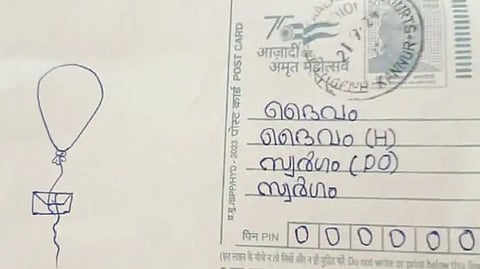 75
आज़ादी का
अमृत महोत्सव
पोस्ट कार्ड POST CARD
ദൈവം
ദൈവം (H)
സ്വർഗം (PO)
സ്വർഗം
पिन PIN 0 0 0 0 0 0
Do not write or print below this
KANNUR